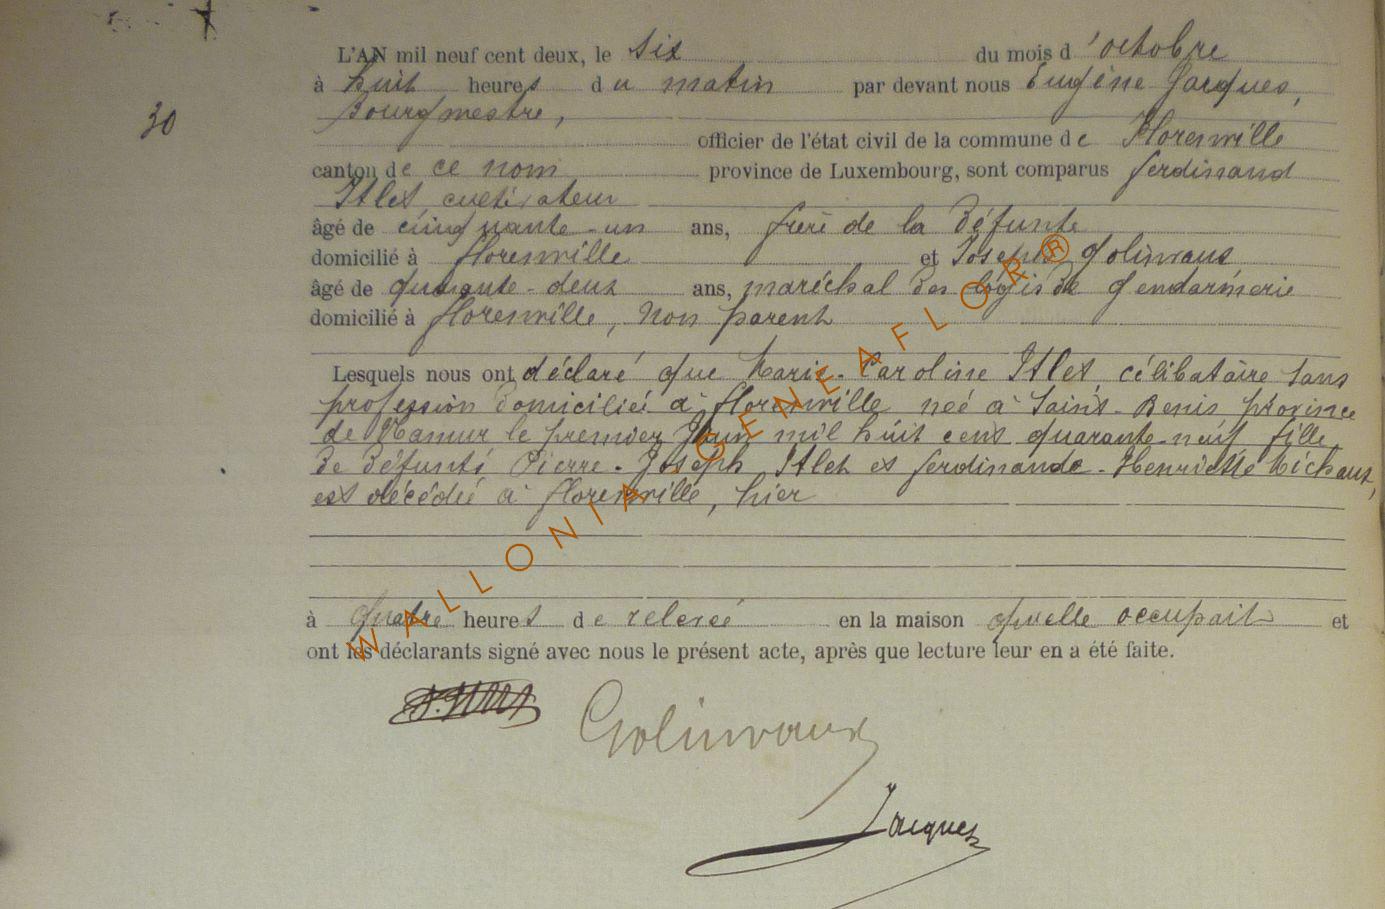 L'AN mil neuf cent deux, le six du mois d'octobre
à huit heures du matin par devant nous Eugène Jacques,
30
Bourgmestre,
officier de l'état civil de la commune de Florenville
canton de ce nom province de Luxembourg, sont comparus ferdinand
Itlet cultivateur
âgé de cinquante-un ans, frère de la défunte
domicilié à florenville et Joseph Golinvaux
âgé de quarante-deux ans, maréchal des logis de gendarmerie
domicilié à florenville, non parent
Lesquels nous ont déclaré que Marie-Caroline Itlet, célibataire sans
profession domiciliée à florenville née à Saint-Denis province
de Namur le premier mil huit cent quarante-neuf fille
de défunts Pierre-Joseph Itlet et ferdinande-Henriette Michaux,
est décédée à florenville, hier
à quatre heures de relevée en la maison qu'elle occupait et
ont les déclarants signé avec nous le présent acte, après que lecture leur en a été faite.
Golinvaux
Jacques
WALLONIA GENEAFLOR®